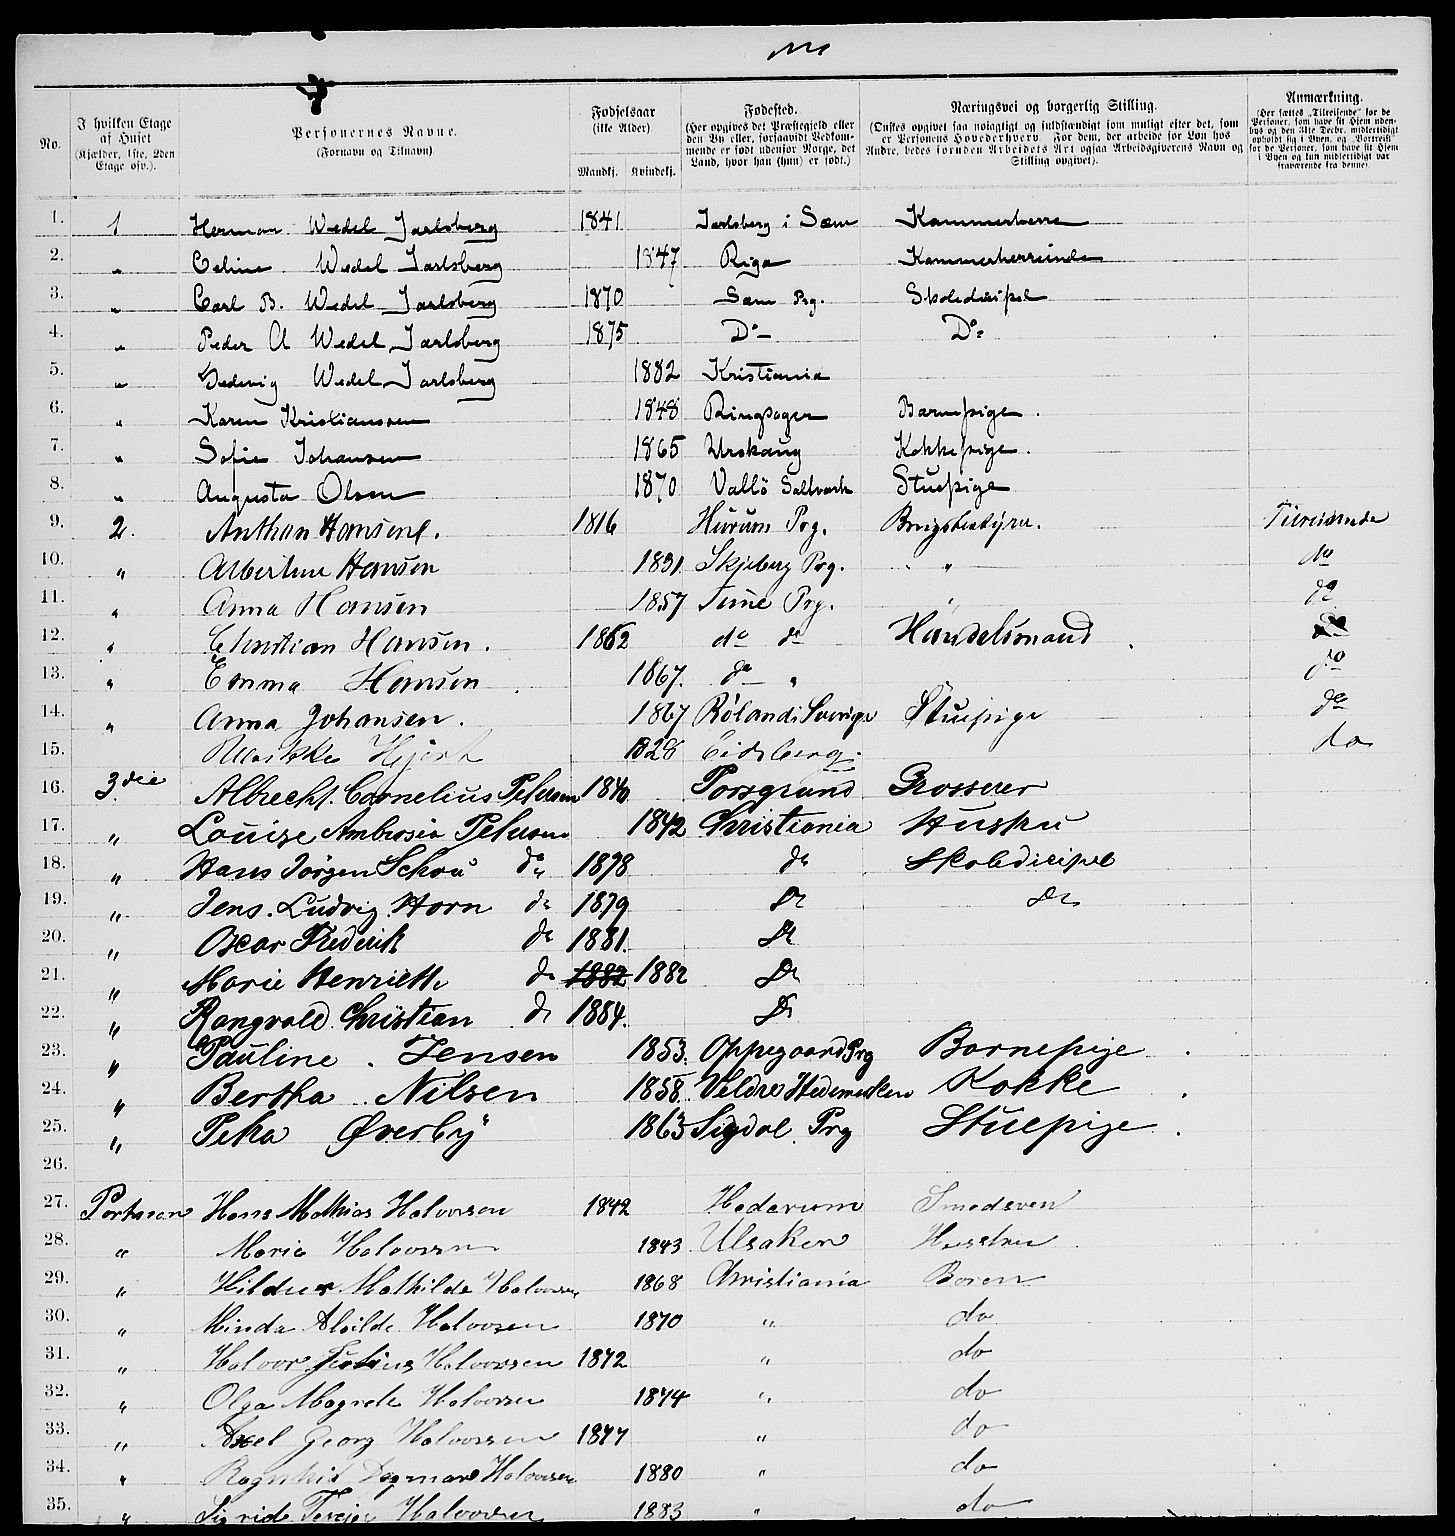 No.
I hvilken Etage
af Huset
(Kjælder, 1ste, 2den
Etage osv.).
Personernes Navne.
(Fornavn og Tilnavn)
Fødselsaar
(ikke Alder).
Mandkj. Kvindekj.
Fødested.
(Her opgives det Præstegjeld eller
den By eller, forsaavidt Vedkom-
mende er født udenfor Norge, det
Land, hvor han (hun) er født.)
Næringsvei og borgerlig Stilling.
(Ønskes opgivet saa nøiagtig og fuldstændigt som muligt efter det, som
er Personens Hovederhverv. For dem, der arbeide for Løn hos
Andre, bedes foruden Arbeidets Art ogsaa Arbeidsgiverens Navn og
Stilling opgivet).
Anmærkning.
(Her sættes „Tilreisende" for de
Personer, som have sit Hjem uden-
bys og den 31te Decbr. midlertidigt
opholdt sig i Byen, og „Bortreist"
for de Personer, som have sit Hjem
i Byen og kun midlertidigt var
fraværende fra denne).
1. 1 Herman Wedel Jarlsberg 1841 Jarlsberg i Sæm Kammerherre
2. " Celine Wedel Jarlsberg 1847 Riga Kammerherreinde
3. " Carl B. Wedel Jarlsberg 1870 Sæm Prg. Skoledisipel
4. " Peder A Wedel Jarlsberg 1875 Do Do
5. " Hedevig Wedel Jarlsberg 1882 Kristiania
6. " Karen Kristiansen 1848 Ringsager Barnepige.
7. " Sofie Johansen 1865 Urskaug Kokkepige.
8. " Augusta Olsen 1870 Vallö Saltværk Stuepige
9. 2. Anthon Hansen. 1816 Hurum Prg. Tilreisende
10. " Albertine Hansen 1831 Skjeberg Prg. " do
11. " Anna Hansen 1857 Tune Prg. " do
12. " Christian Hansen. 1862 do do Handelsmand
13. " Emma Hansen 1867. do " do
14. " Anna Johansen. 1867 Röland i Sverige Stuepige do
15. Hjort 1828 Eidsberg. do
16. 3die Albrecht Cornelius Petersen 1840 Porsgrund Grosserer
17. " Louise Ambrosia Petersen 1842 Christiania Hustru
18. " Hans Jörgen Schou do 1878 do Skoledicipel
19. " Jens Ludvig Horn do 1879 do do
20. " Oscar Frederik do 1881. do
21. " Marie Henriette do 1882 1882 do
22. " Rangvald Christian do 1884. do
23. " Pauline Jensen 1853. Oppegaard Prg Barnepige
24. " Bertha Nilsen 1858. Veldre Hedemarken Kokke
25. " Petra Øverby 1863 Sigdal Prg Stuepige
26.
27. Hans Mathias Halvorsen 1842 Smedsven
28. " Marie Halvorsen 1843 Ulsaker Hustru
29. " Mathilde Halvorsen 1868 Christiania Boren
30. " Minda Halvorsen 1870 " do
31. " Halvor Julius Halvorsen 1872 " do
32. " Olga Magrete Halvorsen 1874 " do
33. " Axel Georg Halvorsen 1877 " do
34. " Ragnhild Dagmar Halvorsen 1880 " do
35. " Sigride Halvorsen 1883 " do